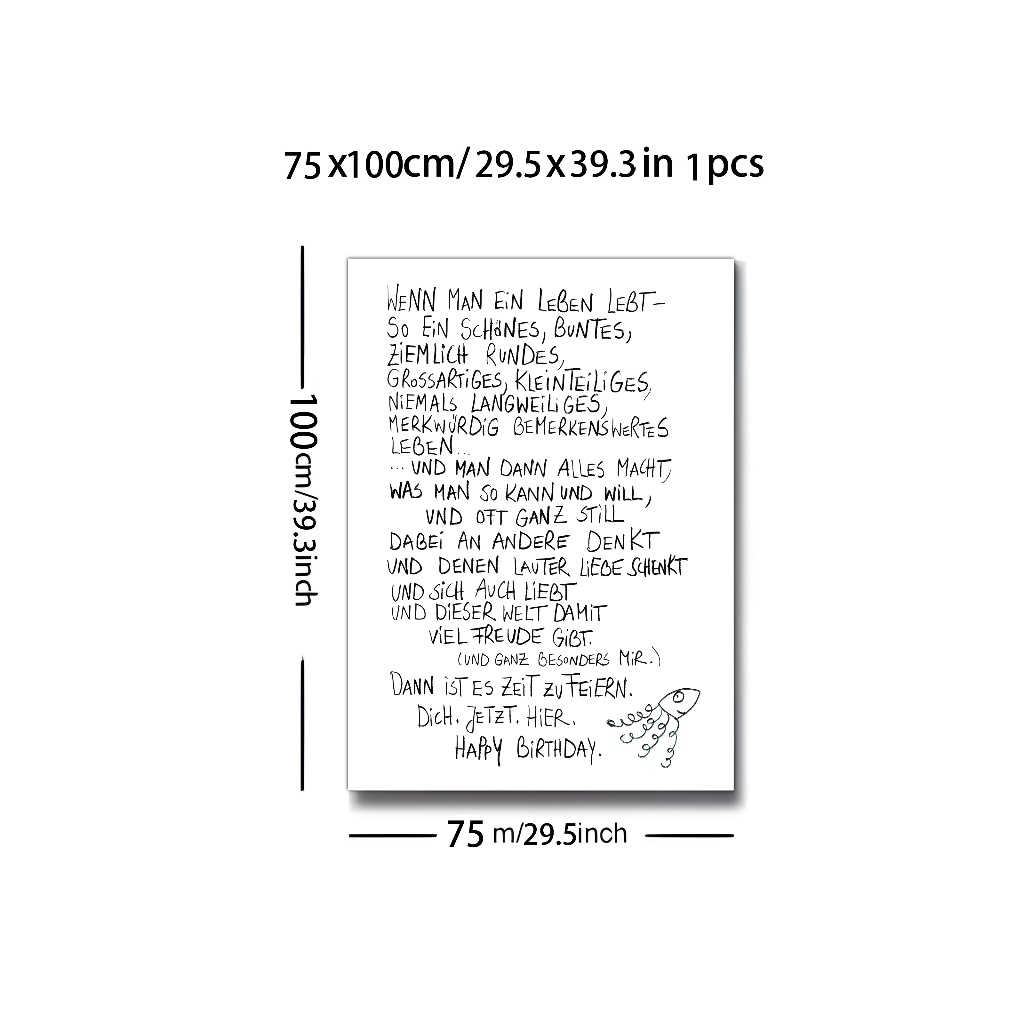 75x100cm/29.5x39.3in 1pcs
100cm/39.3inch
WENN MAN EIN LEBEN LEBT–
SO EIN SCHÖNES, BUNTES,
ZIEMLICH RUNDES,
GROSSARTIGES, KLEINTEILIGES,
NIEMALS LANGWEILIGES,
MERKWÜRDIG BEMERKENSWERTES
LEBEN...
... UND MAN DANN ALLES MACHT,
WAS MAN SO KANN UND WILL,
UND OFT GANZ STILL
DABEI AN ANDERE DENKT
UND DENEN LAUTER LIEBE SCHENKT
UND SICH AUCH LIEBT
UND DIESER WELT DAMIT
VIEL FREUDE GIBT.
(UND GANZ BESONDERS MIR.)
DANN IST ES ZEIT ZU FEIERN.
DICH. JETZT. HIER.
HAPPY BIRTHDAY.
75 m/29.5inch